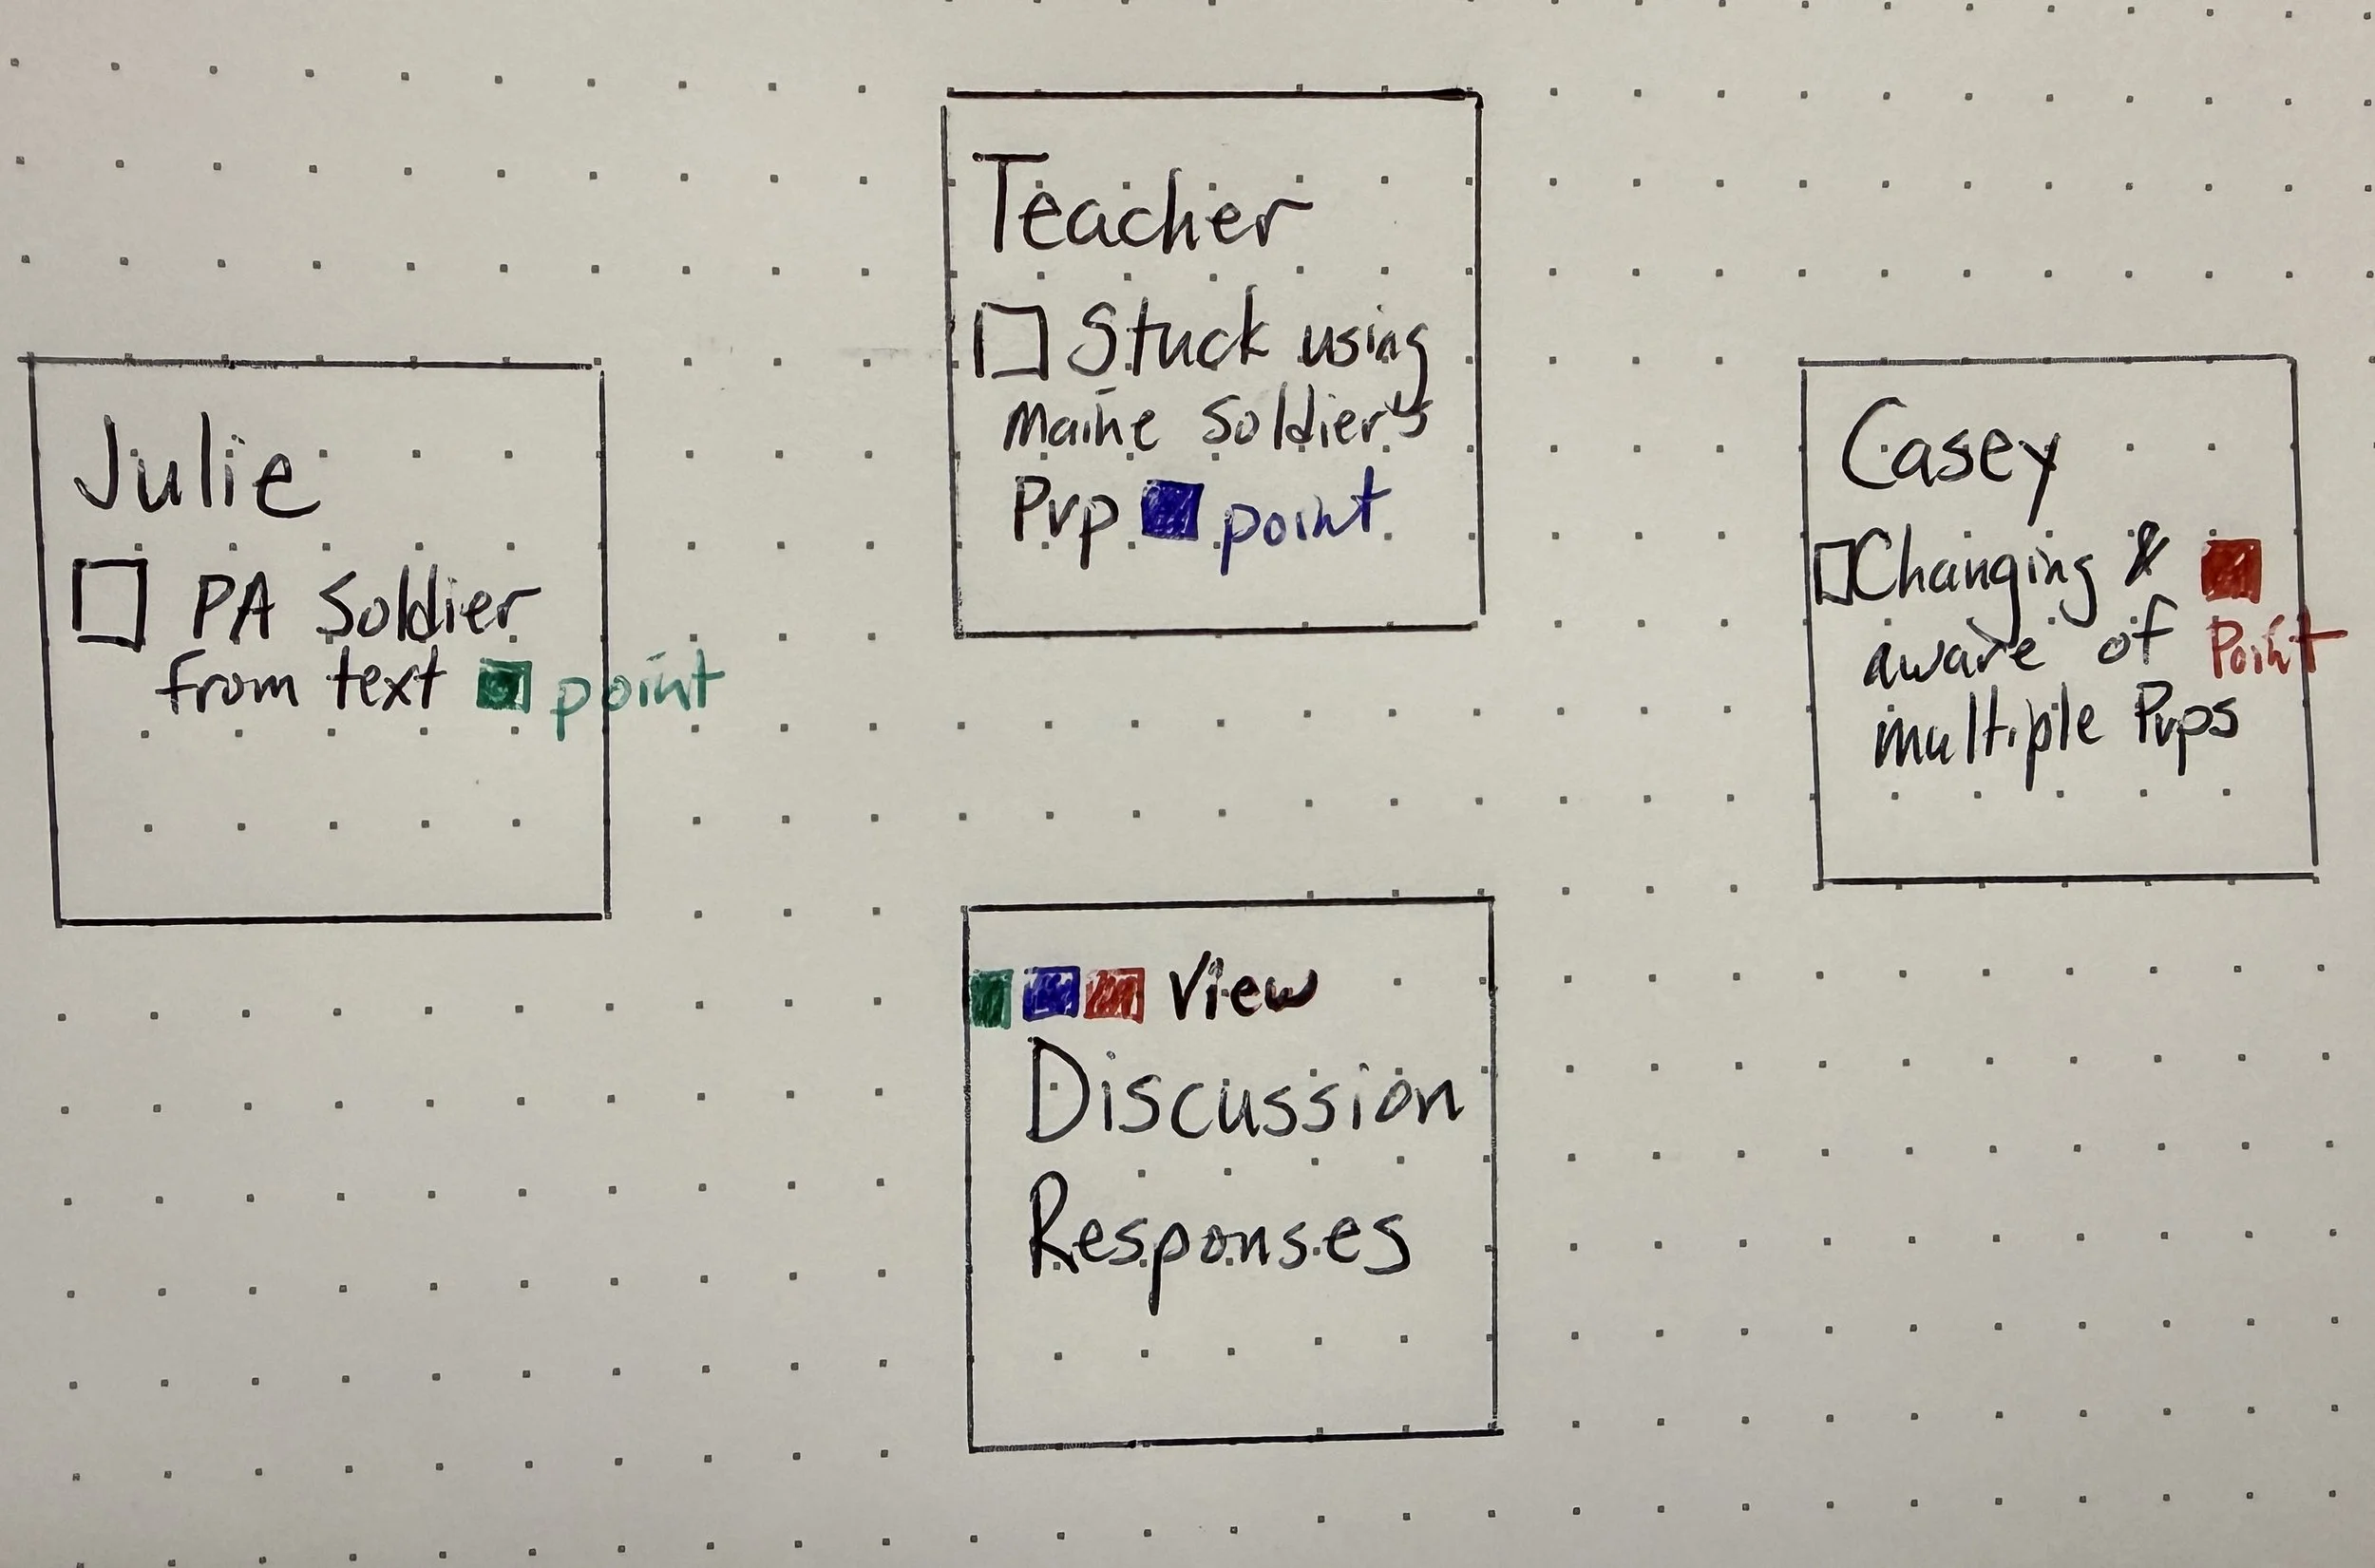 Teacher
Stuck using
Maine Soldier's
Pvp point
Julie
PA Soldier
from text point
Casey
Changing &
aware of Point
multiple Pvps
View
Discussion
Responses